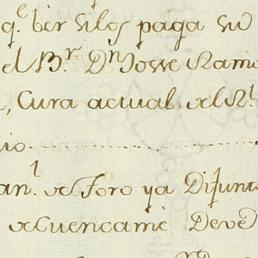 q.e bir silos paga su
el B.r D.n Josse Ramo
, Cura actual del R.l
io
an.l de Foro ya Difunt
de Cuencamè Devè